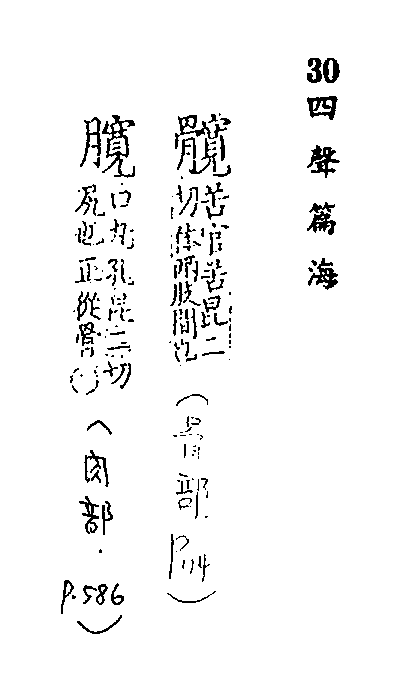 30四聲篇海
髖苦官苦昆二
切体兩股間也
(骨部.P114)
臗口丸孔昆二切
尻也正從骨
(肉部.P.586)